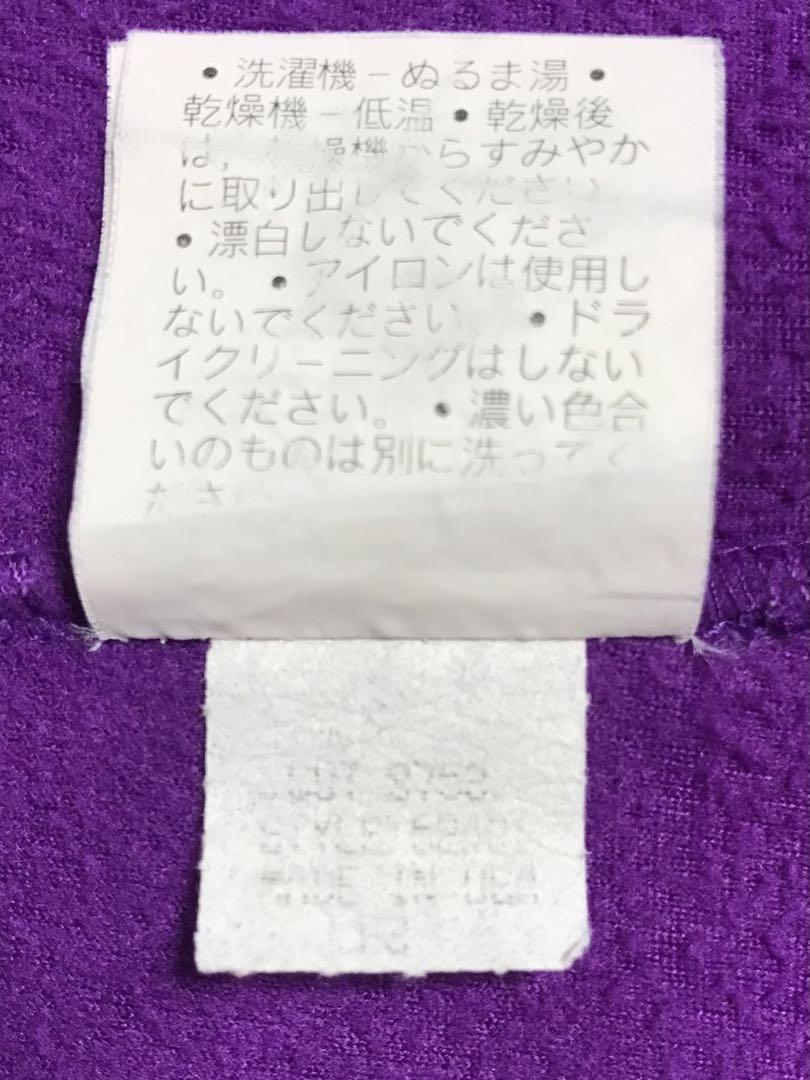 • 洗濯機 – ぬるま湯 •
乾燥機 – 低温 • 乾燥後
は, 燥機からすみやか
に取り出してください
• 漂白しないでくださ
い。 • アイロンは使用し
ないでください • ドラ
イクリーニングはしない
でください。 • 濃い色合
いのものは別に洗ってく
ださ